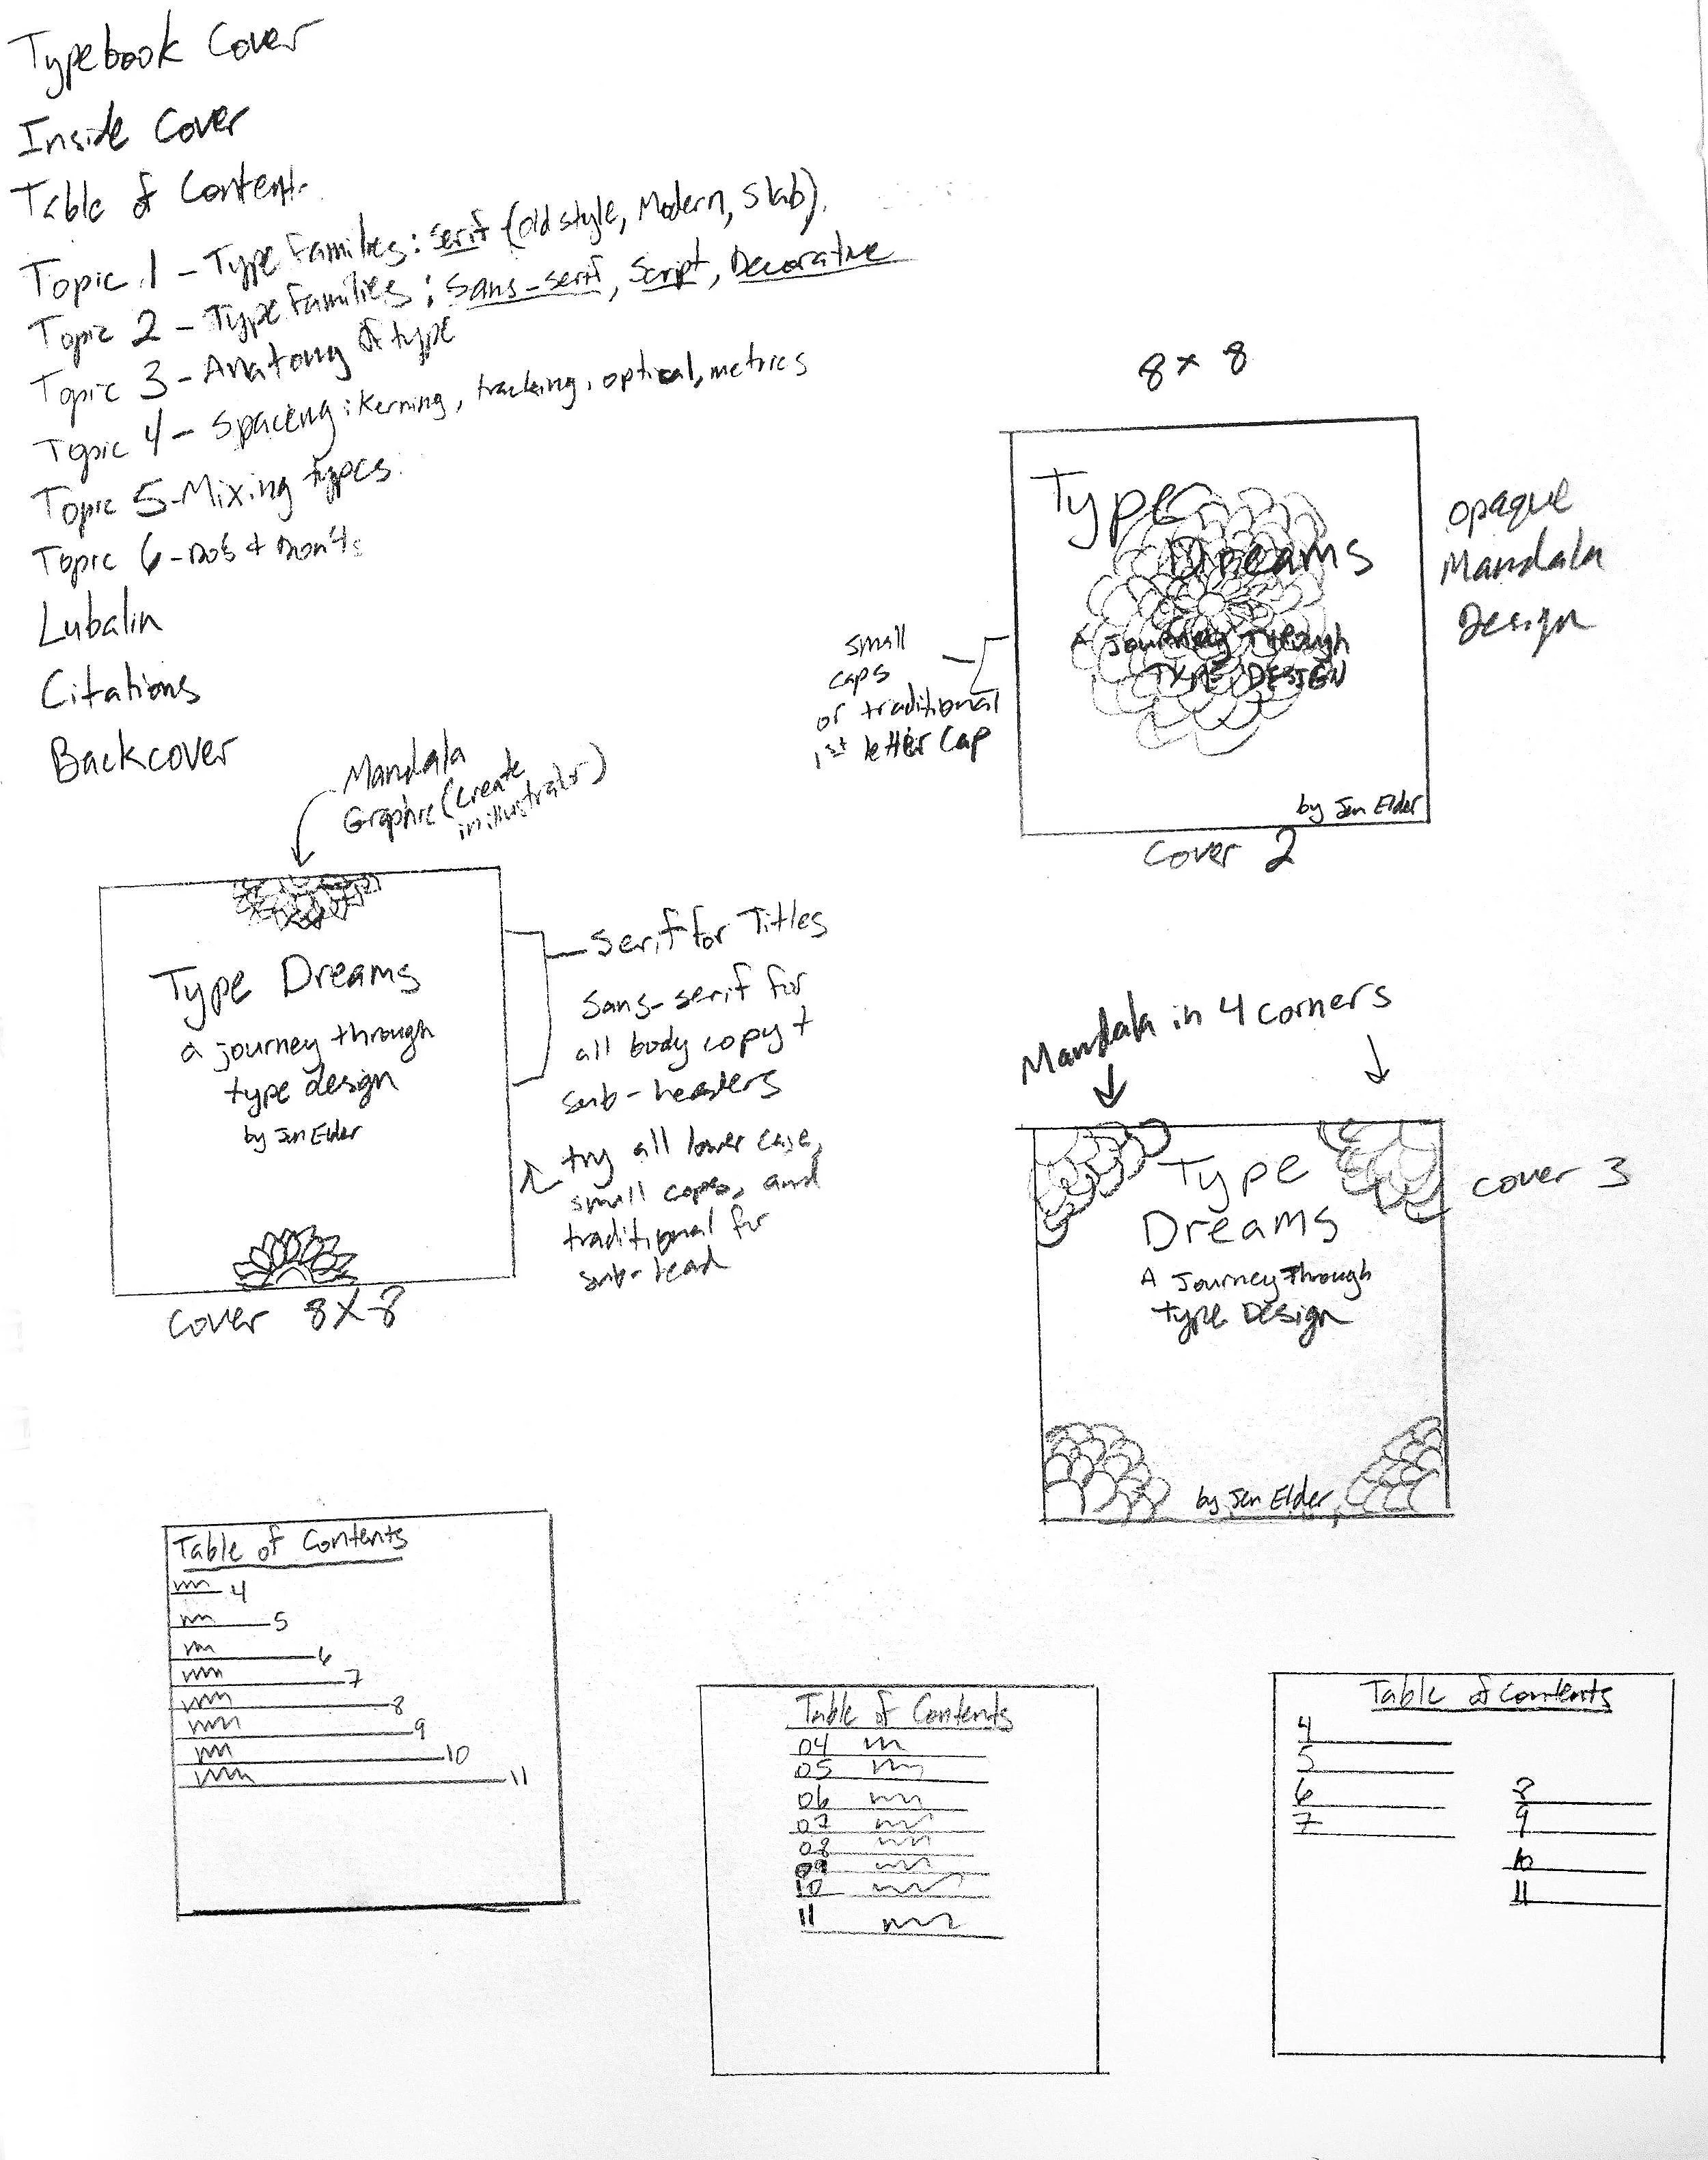 Typebook Cover
Inside Cover
Table of Contents
Topic 1 - Type Families: serif (old style, Modern, Slab).
Topic 2 - Type Families: Sans-serif, Script, Decorative
Topic 3 - Anatomy of type
Topic 4 - Spacing: kerning, tracking, optical, metrics
Topic 5 - Mixing types.
Topic 6 - Do's + Don'ts
Lubalin
Citations
Backcover
8x8
Type
Dreams
A Journey Through
TYPE DESIGN
by Jen Elder
Cover 2
opaque
Mandala
Design
small
caps
or traditional
1st letter cap
Mandala
Graphic (create
in illustrator)
Type Dreams
a journey through
type design
by Jen Elder
Cover 8x8
Serif for Titles
Sans-serif for
all body copy +
sub-headers
try all lower case,
small caps, and
traditional for
sub-head
Mandala in 4 corners
Type
Dreams
A Journey Through
type Design
by Jen Elder
cover 3
Table of Contents
4
5
6
7
8
9
10
11
Table of Contents
04
05
06
07
08
09
10
11
Table of Contents
4
5
6
7
8
9
10
11